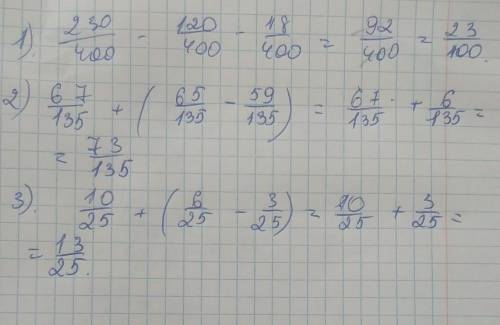 1). 230/400 - 120/400 - 18/400 = 92/400 = 23/100.
2) 67/135 + ( 65/135 - 59/135 ) = 67/135 + 6/135 =
= 73/135
3). 10/25 + ( 6/25 - 3/25 ) = 10/25 + 3/25 =
= 13/25.